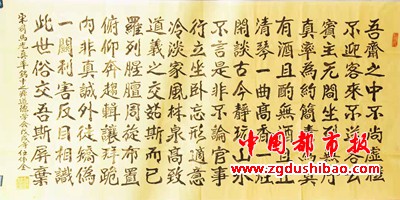 吾齋之中不尚虛禮
不迎客來不送客去
賓主無間坐列無序
真率為約簡素為具
有酒且酌無酒且止
清琴一曲香一炷
閑談古今靜玩山水
不言是非不論官事
行立坐卧忘形適意
冷淡家風林泉高致
道義之交如斯而已
羅列腥膻周旋布置
俯仰奔趨揖讓拜跪
內非真誠外徒矯偽
一關利害反目相視
此世俗交吾斯屏棄
宋司馬光真率銘
中國都市報
www.zgdushibao.com